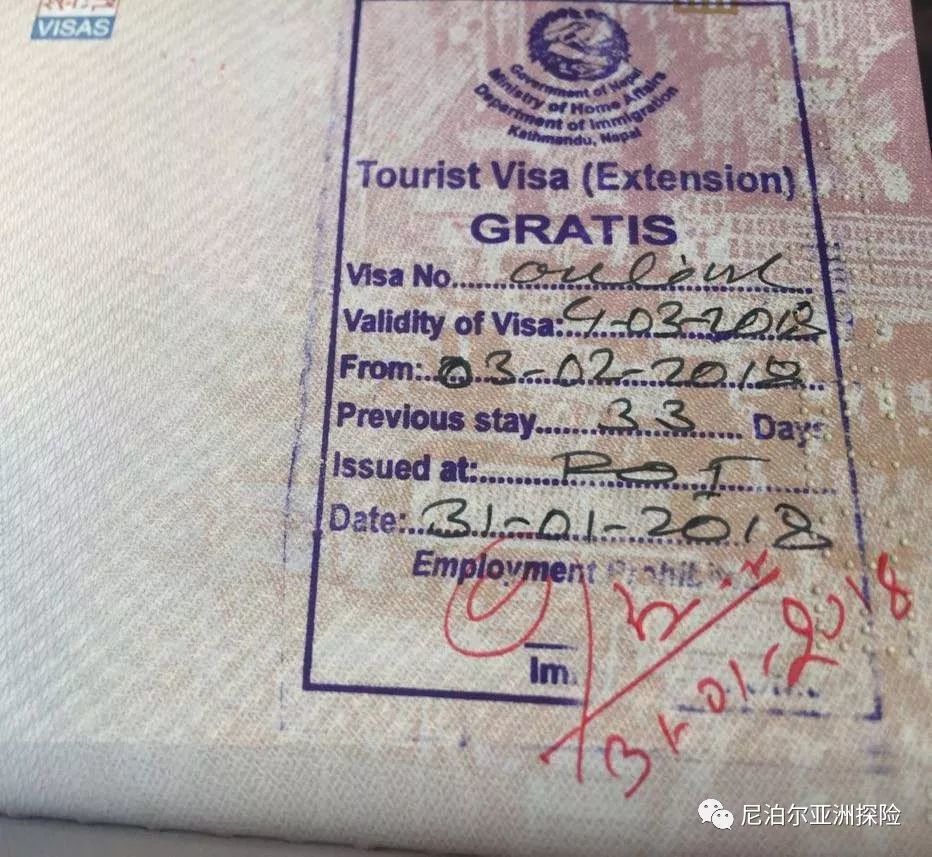 VISAS
Government of Nepal
Ministry of Home Affairs
Department of Immigration
Kathmandu, Nepal
Tourist Visa (Extension)
GRATIS
Visa No. online
Validity of Visa: 4-03-2018
From: 03-02-2018
Previous stay 33 Days
Issued at: POT
Date: 31-01-2018
Employment Prohibited
Im.
31-01-2018
尼泊尔亚洲探险